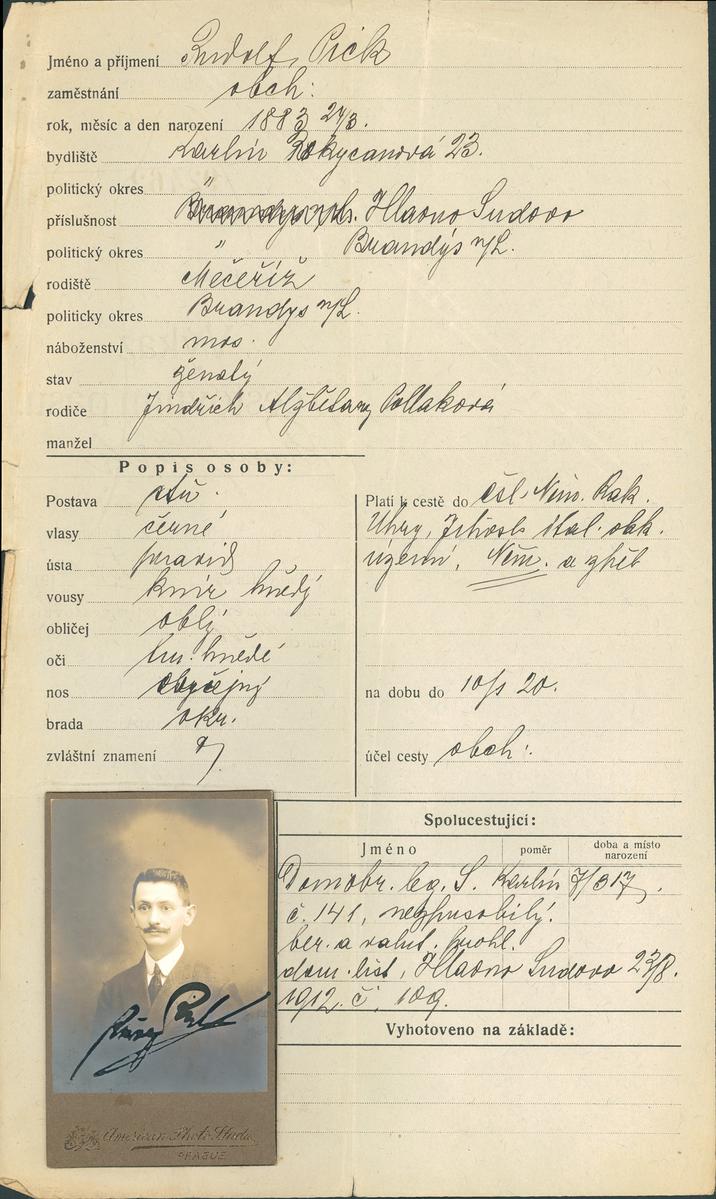 Jméno a příjmení Rudolf Pick
zaměstnání obch:
rok, měsíc a den narození 1883 27/3.
bydliště Karlín Rokycanová 23.
politický okres "
příslušnost Hlavno Sudovo
politický okres " Brandýs n/L.
rodiště Mečeříž
politicky okres Brandys n/L.
náboženství mos.
stav ženatý
rodiče Jindřich Alžběta Pollaková
manžel
Popis osoby:
Postava stř.
vlasy černé
ústa pravid
vousy knír hnědý
obličej oblý
oči tm. hnědé
nos obyčejný
brada okr.
zvláštní znamení
Platí k cestě do čsl. Něm. Rak.
Uhry, Jihosl. Ital. obk.
území, Něm. a zpět
na dobu do 10/1 20.
účel cesty obch:
Spolucestující:
Jméno poměr doba a místo narození
Domobr. leg. S. Karlín 7/3 17.
č. 141, nezpůsobilý.
ber. a valut. prohl.
dom. list, Hlavno Sudovo 23/8.
1912. č. 109.
Vyhotoveno na základě:
Pick
American Photo Studio
PRAGUE